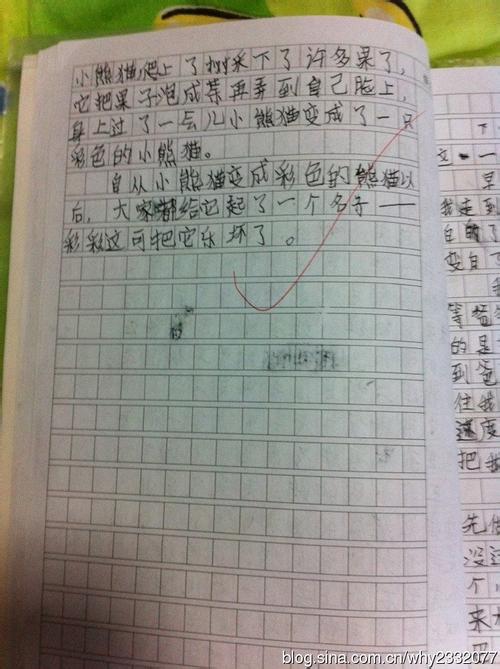 小熊猫爬上了树采下了许多果了,
它把果子泡成茶再弄到自己脸上,
身上过了一会儿小熊猫变成了一只
彩色的小熊猫。
自从小熊猫变成彩色的熊猫以
后,大家给它起了一个名子——
彩彩这可把它乐坏了。
下
文·一
早
我走到
白的了
变白了
我
等爸
的是
到爸
住我
速度
把我
先做
没过
个
来
blog.sina.com.cn/why2332077